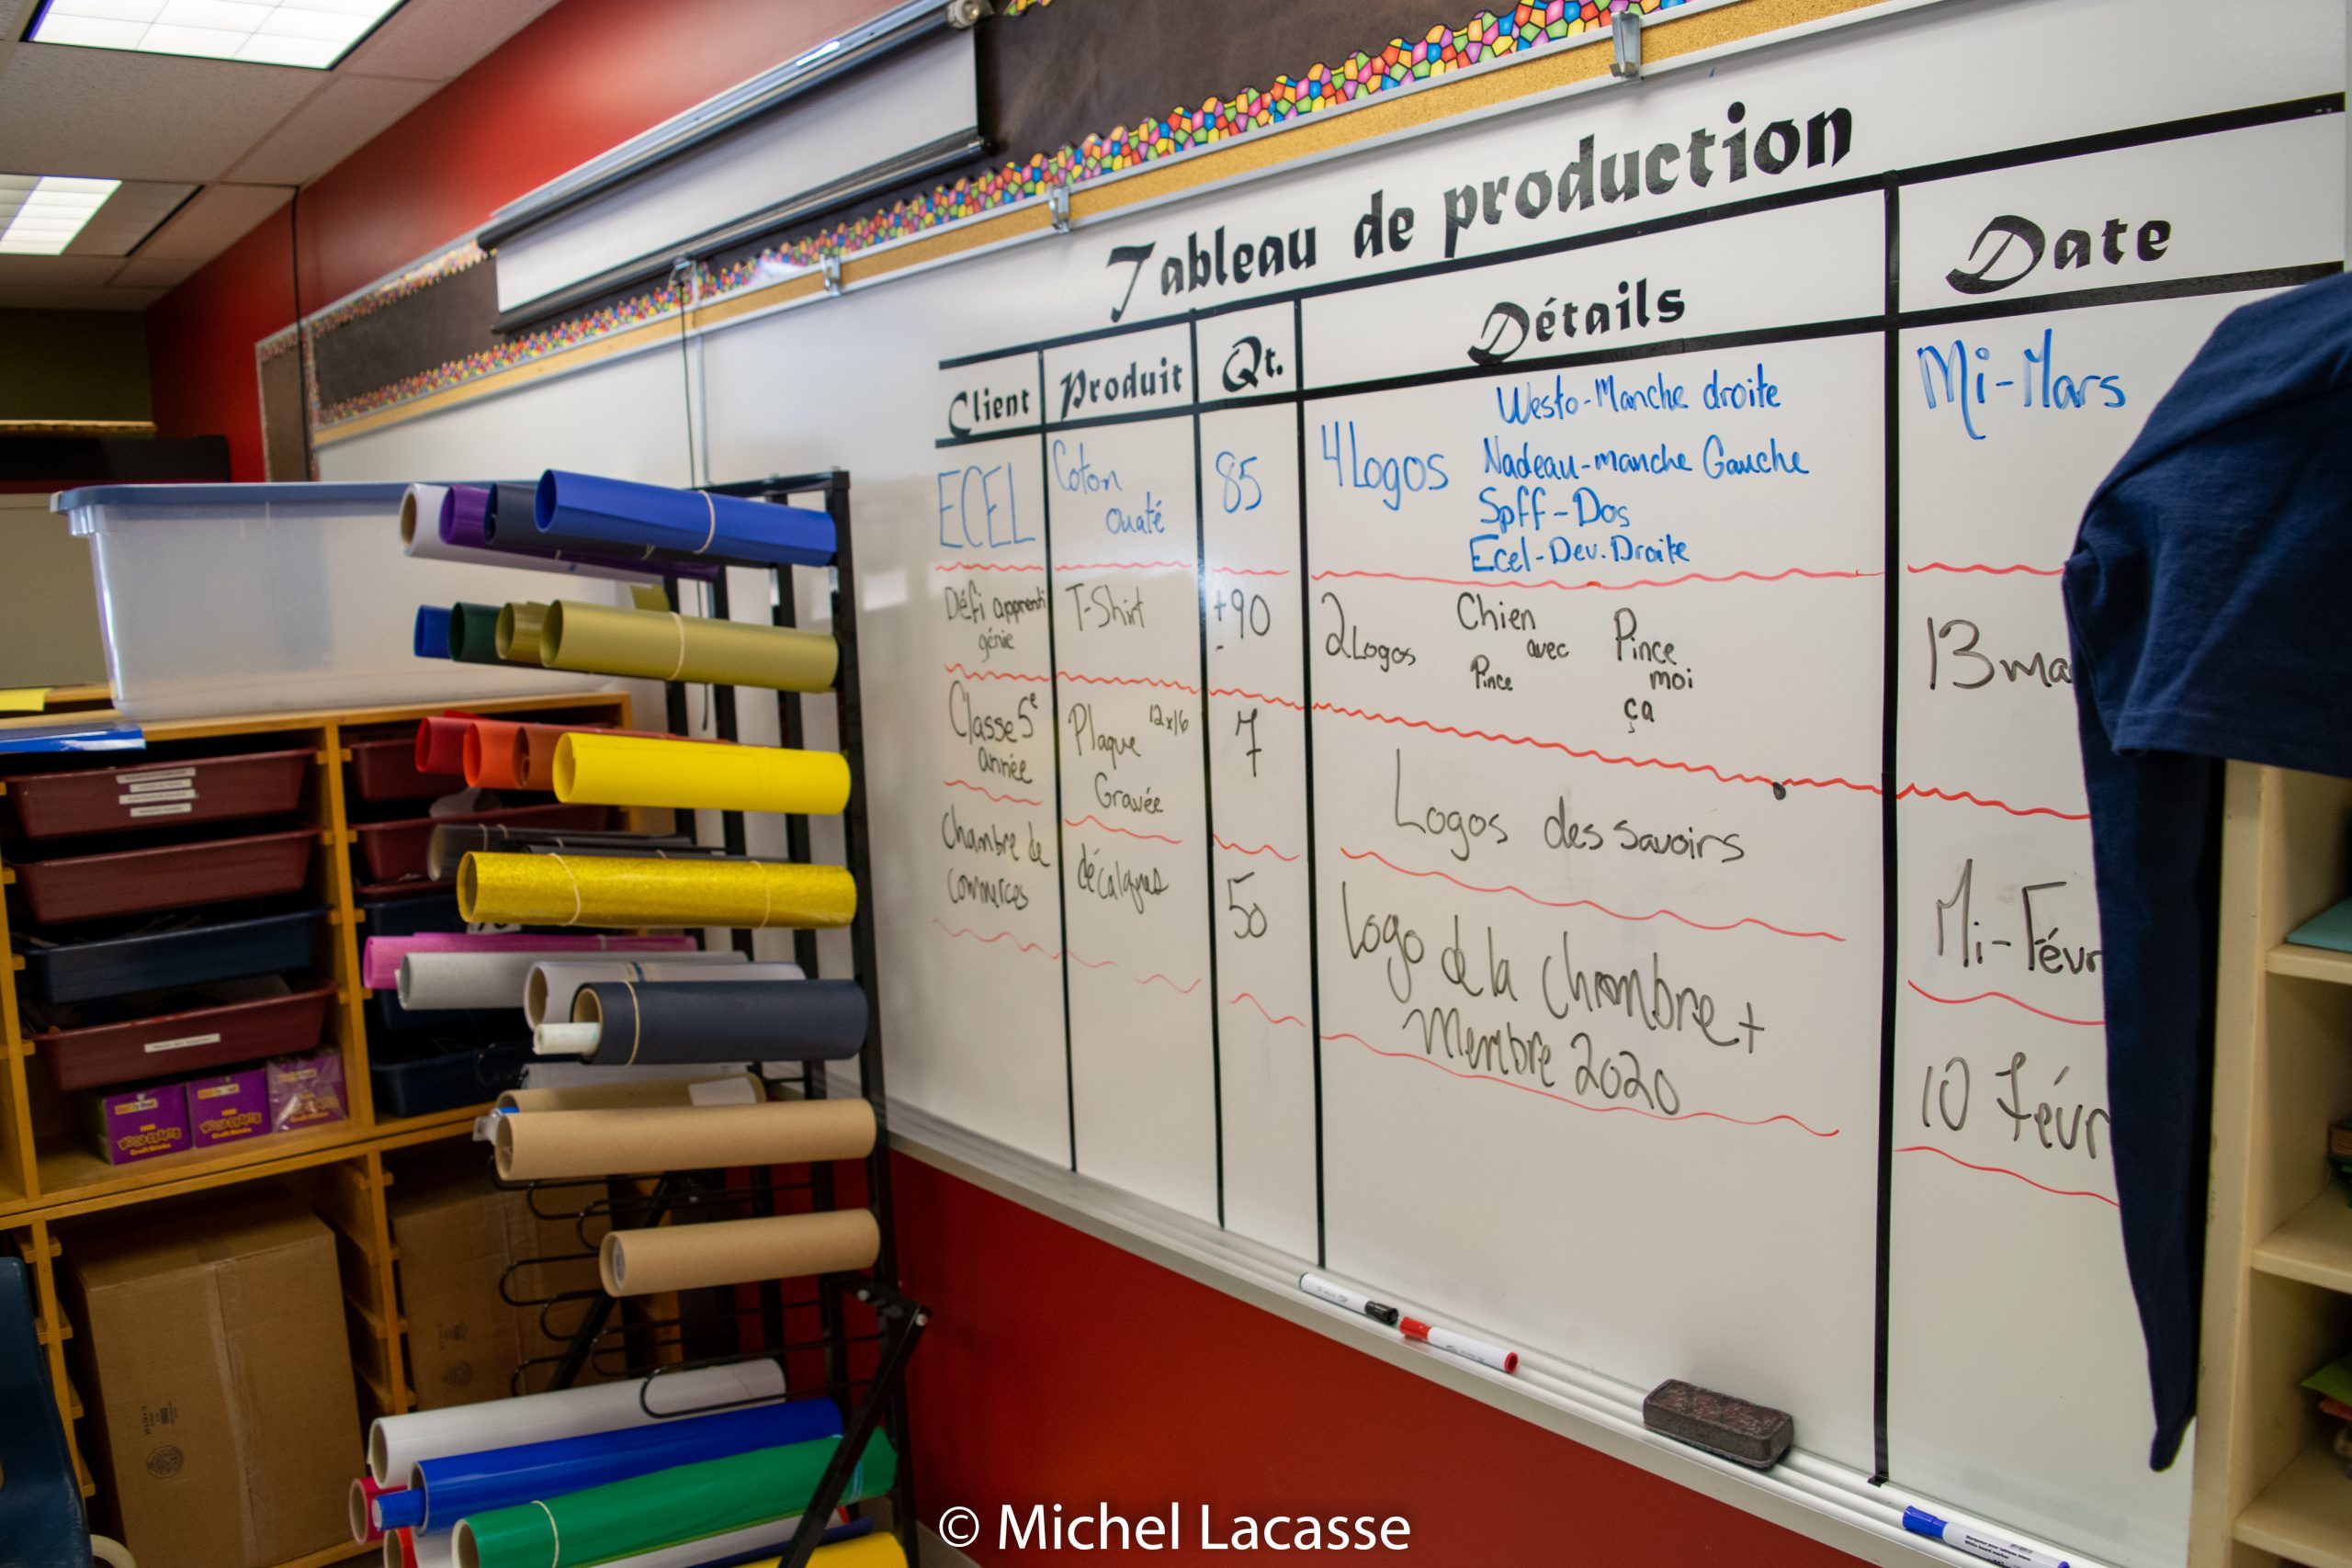 Tableau de production
Client
Produit
Qt.
Détails
Date
ECEL
Coton
ouaté
85
4 Logos
Westo-Manche droite
Nadeau-manche Gauche
Spff-Dos
Ecel-Dev. Droite
Mi-Mars
Défi apprenti
génie
T-Shirt
+90
-
2 Logos
Chien
avec
Pince
Pince
moi
ça
13 ma
Classe 5e
année
Plaque 12x16
Gravée
7
Logos des savoirs
Mi-Févr
Chambre de
Commerces
décalques
50
Logo de la Chambre +
Membre 2020
10 Févr
© Michel Lacasse